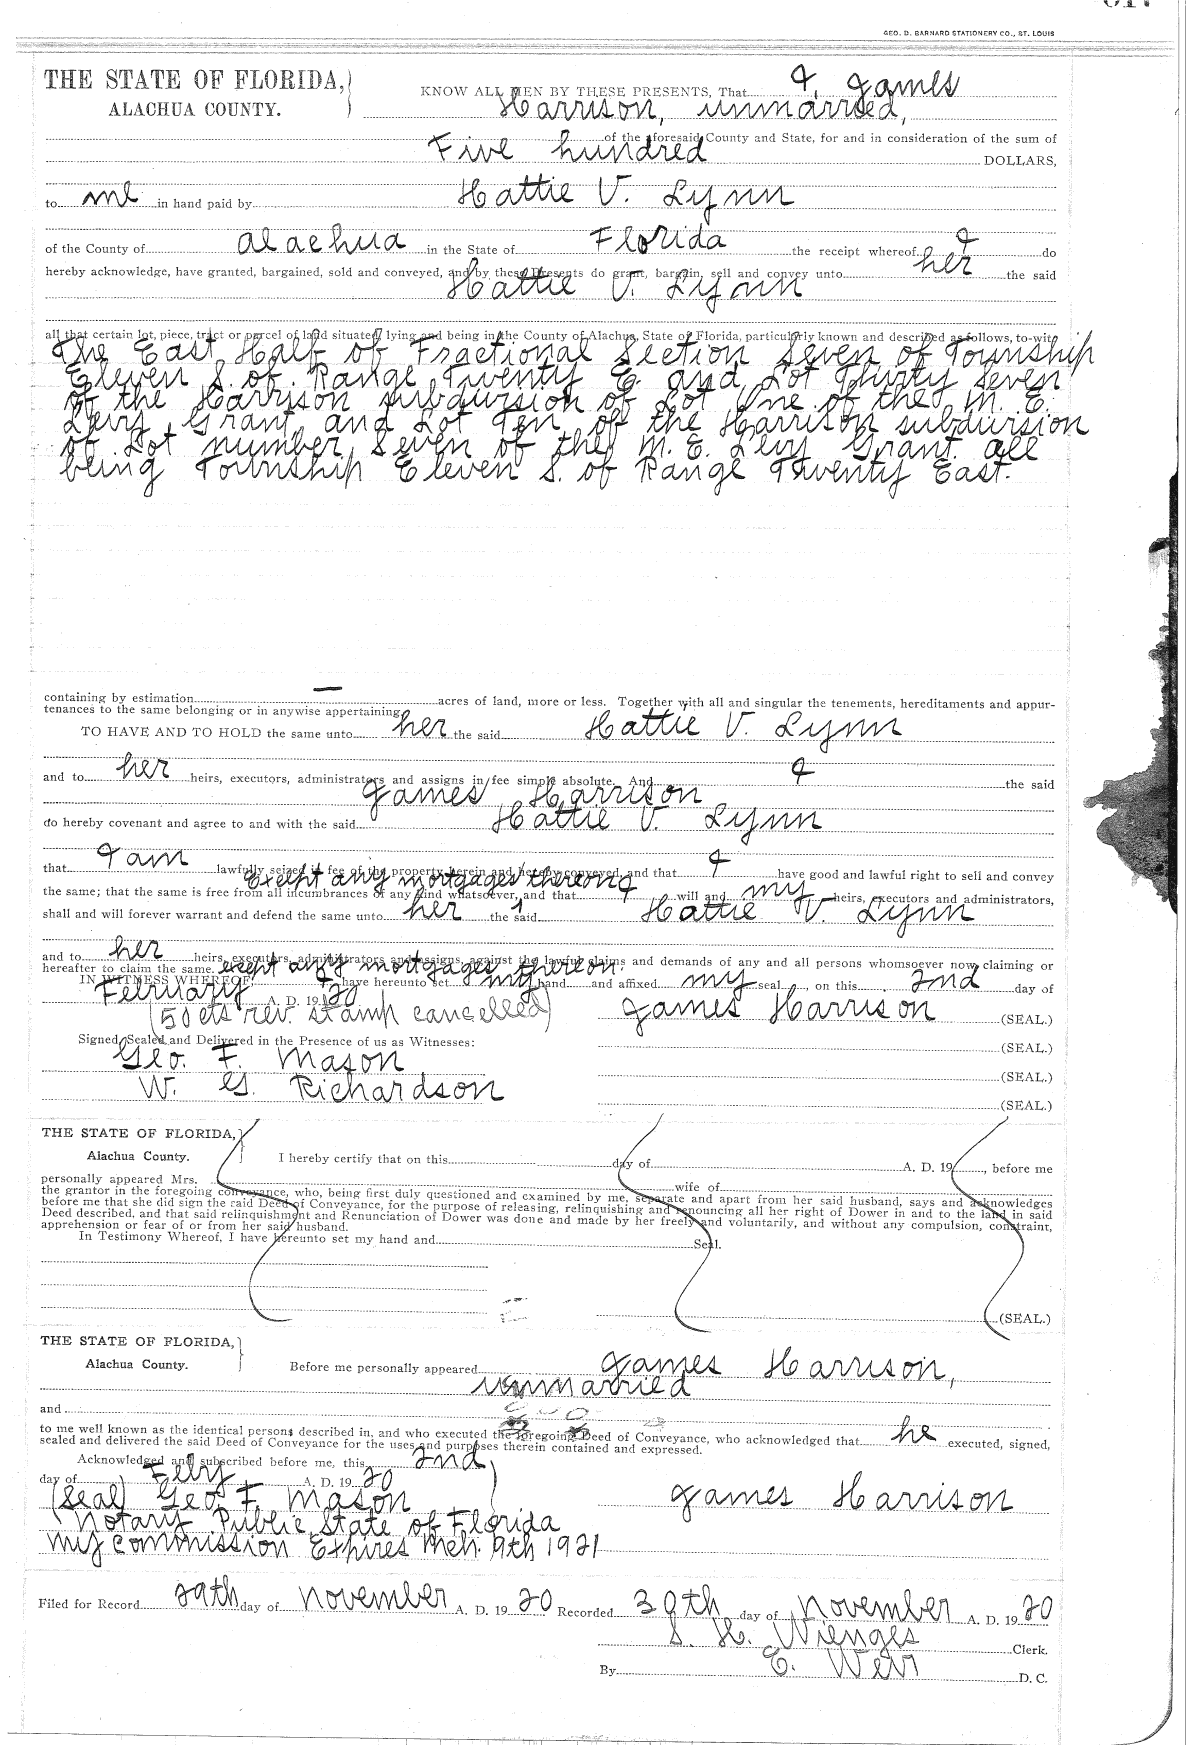 GEO. D. BARNARD STATIONERY CO., ST. LOUIS
THE STATE OF FLORIDA,
ALACHUA COUNTY.
KNOW ALL MEN BY THESE PRESENTS, That I, James
Harrison, unmarried,
of the aforesaid County and State, for and in consideration of the sum of
Five hundred DOLLARS,
to me in hand paid by Hattie V. Lynn
of the County of Alachua in the State of Florida the receipt whereof I do
hereby acknowledge, have granted, bargained, sold and conveyed, and by these Presents do grant, bargain, sell and convey unto her the said
Hattie V. Lynn
all that certain lot, piece, tract or parcel of land situated, lying and being in the County of Alachua, State of Florida, particularly known and described as follows, to-wit:
The East Half of Fractional Section Seven of Township
Eleven S. of Range Twenty E. and Lot Thirty seven
of the Harrison subdivision of Lot One of the M. E.
Levy Grant, and Lot Ten of the Harrison subdivision
of Lot number Seven of the M. E. Levy Grant. all
being Township Eleven S. of Range Twenty East.
containing by estimation — acres of land, more or less. Together with all and singular the tenements, hereditaments and appur-
tenances to the same belonging or in anywise appertaining.
TO HAVE AND TO HOLD the same unto her the said Hattie V. Lynn
and to her heirs, executors, administrators and assigns in fee simple absolute. And I the said
James Harrison
do hereby covenant and agree to and with the said Hattie V. Lynn
that I am lawfully seized in fee of the property herein and hereby conveyed, and that I have good and lawful right to sell and convey
Except any mortgages thereon
the same; that the same is free from all incumbrances of any kind whatsoever, and that I will and my heirs, executors and administrators,
shall and will forever warrant and defend the same unto her the said Hattie V. Lynn
and to her heirs, executors, administrators and assigns, against the lawful claims and demands of any and all persons whomsoever now claiming or
hereafter to claim the same. except any mortgages thereon.
IN WITNESS WHEREOF, I have hereunto set my hand and affixed my seal, on this 2nd day of
February A. D. 1920
(50 cts rev. stamp cancelled) James Harrison (SEAL.)
Signed, Sealed and Delivered in the Presence of us as Witnesses: (SEAL.)
Geo. F. Mason (SEAL.)
W. G. Richardson (SEAL.)
THE STATE OF FLORIDA,
Alachua County. I hereby certify that on this day of A. D. 19, before me
personally appeared Mrs. wife of
the grantor in the foregoing conveyance, who, being first duly questioned and examined by me, separate and apart from her said husband, says and acknowledges
before me that she did sign the raid Deed of Conveyance, for the purpose of releasing, relinquishing and renouncing all her right of Dower in and to the land in said
Deed described, and that said relinquishment and Renunciation of Dower was done and made by her freely and voluntarily, and without any compulsion, constraint,
apprehension or fear of or from her said husband.
In Testimony Whereof, I have hereunto set my hand and Seal.
(SEAL.)
THE STATE OF FLORIDA,
Alachua County. Before me personally appeared James Harrison,
unmarried
and
to me well known as the identical persons described in, and who executed the foregoing Deed of Conveyance, who acknowledged that he executed, signed,
sealed and delivered the said Deed of Conveyance for the uses and purposes therein contained and expressed.
Acknowledged and subscribed before me, this 2nd
day of Feby A. D. 1920
(Seal) Geo. F. Mason James Harrison
Notary Public State of Florida
My commission Expires Mch. 9th 1921
Filed for Record 29th day of November A. D. 1920 Recorded 30th day of November A. D. 1920
S. H. Wienges Clerk.
By E. Weir D. C.